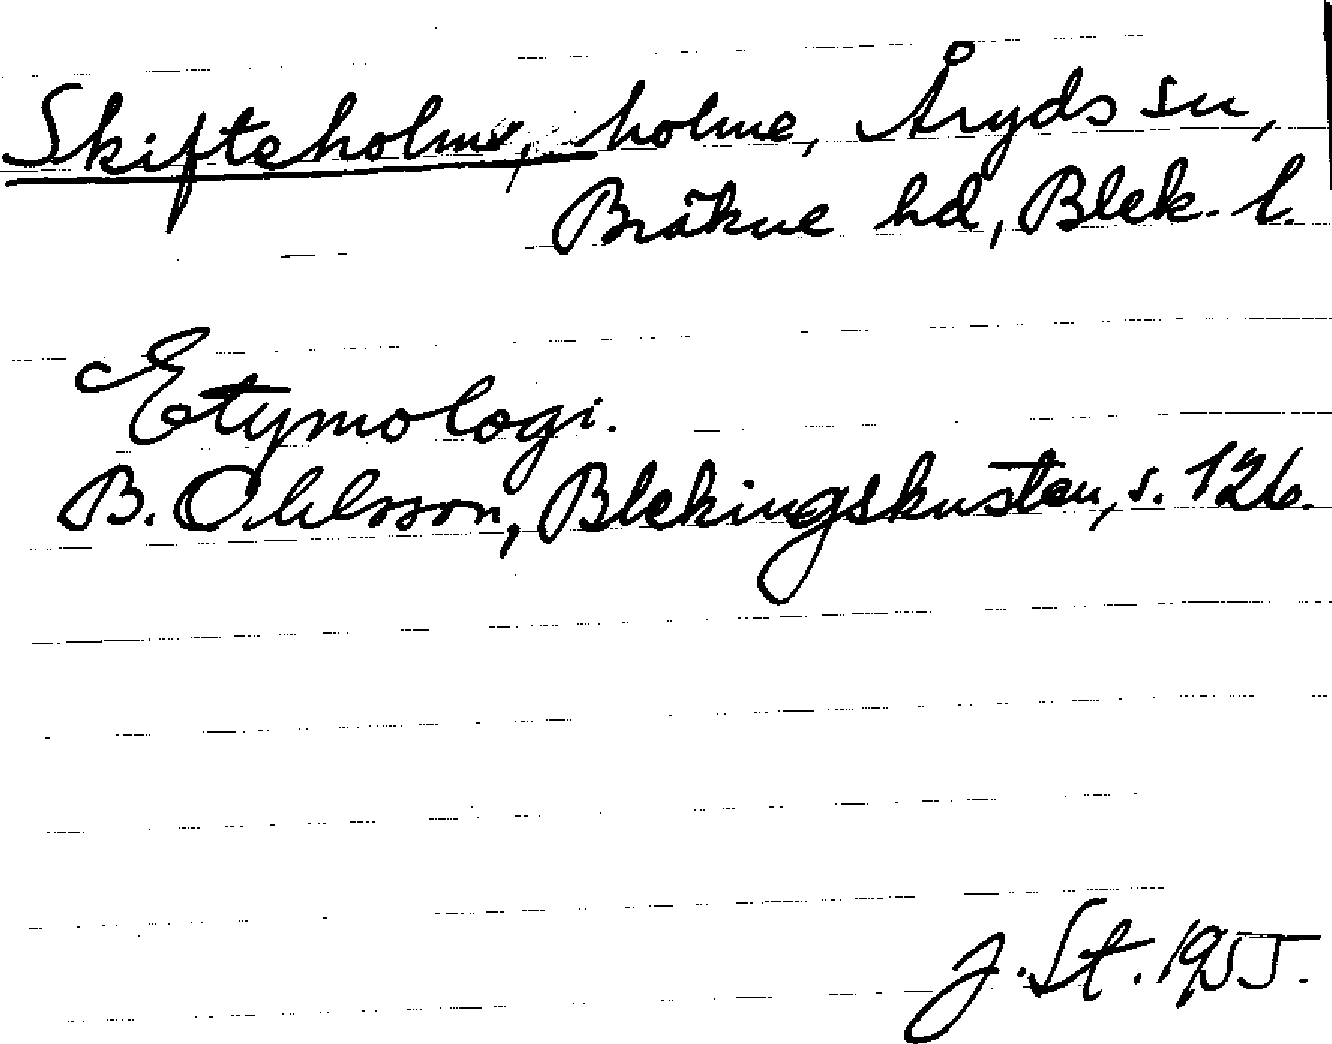 Skifteholme, holme, Åryds sn,
Bräkne hd, Blek. l.
Etymologi.
B. Ohlsson, Blekingskusten, s. 126.
J. St. 1955.